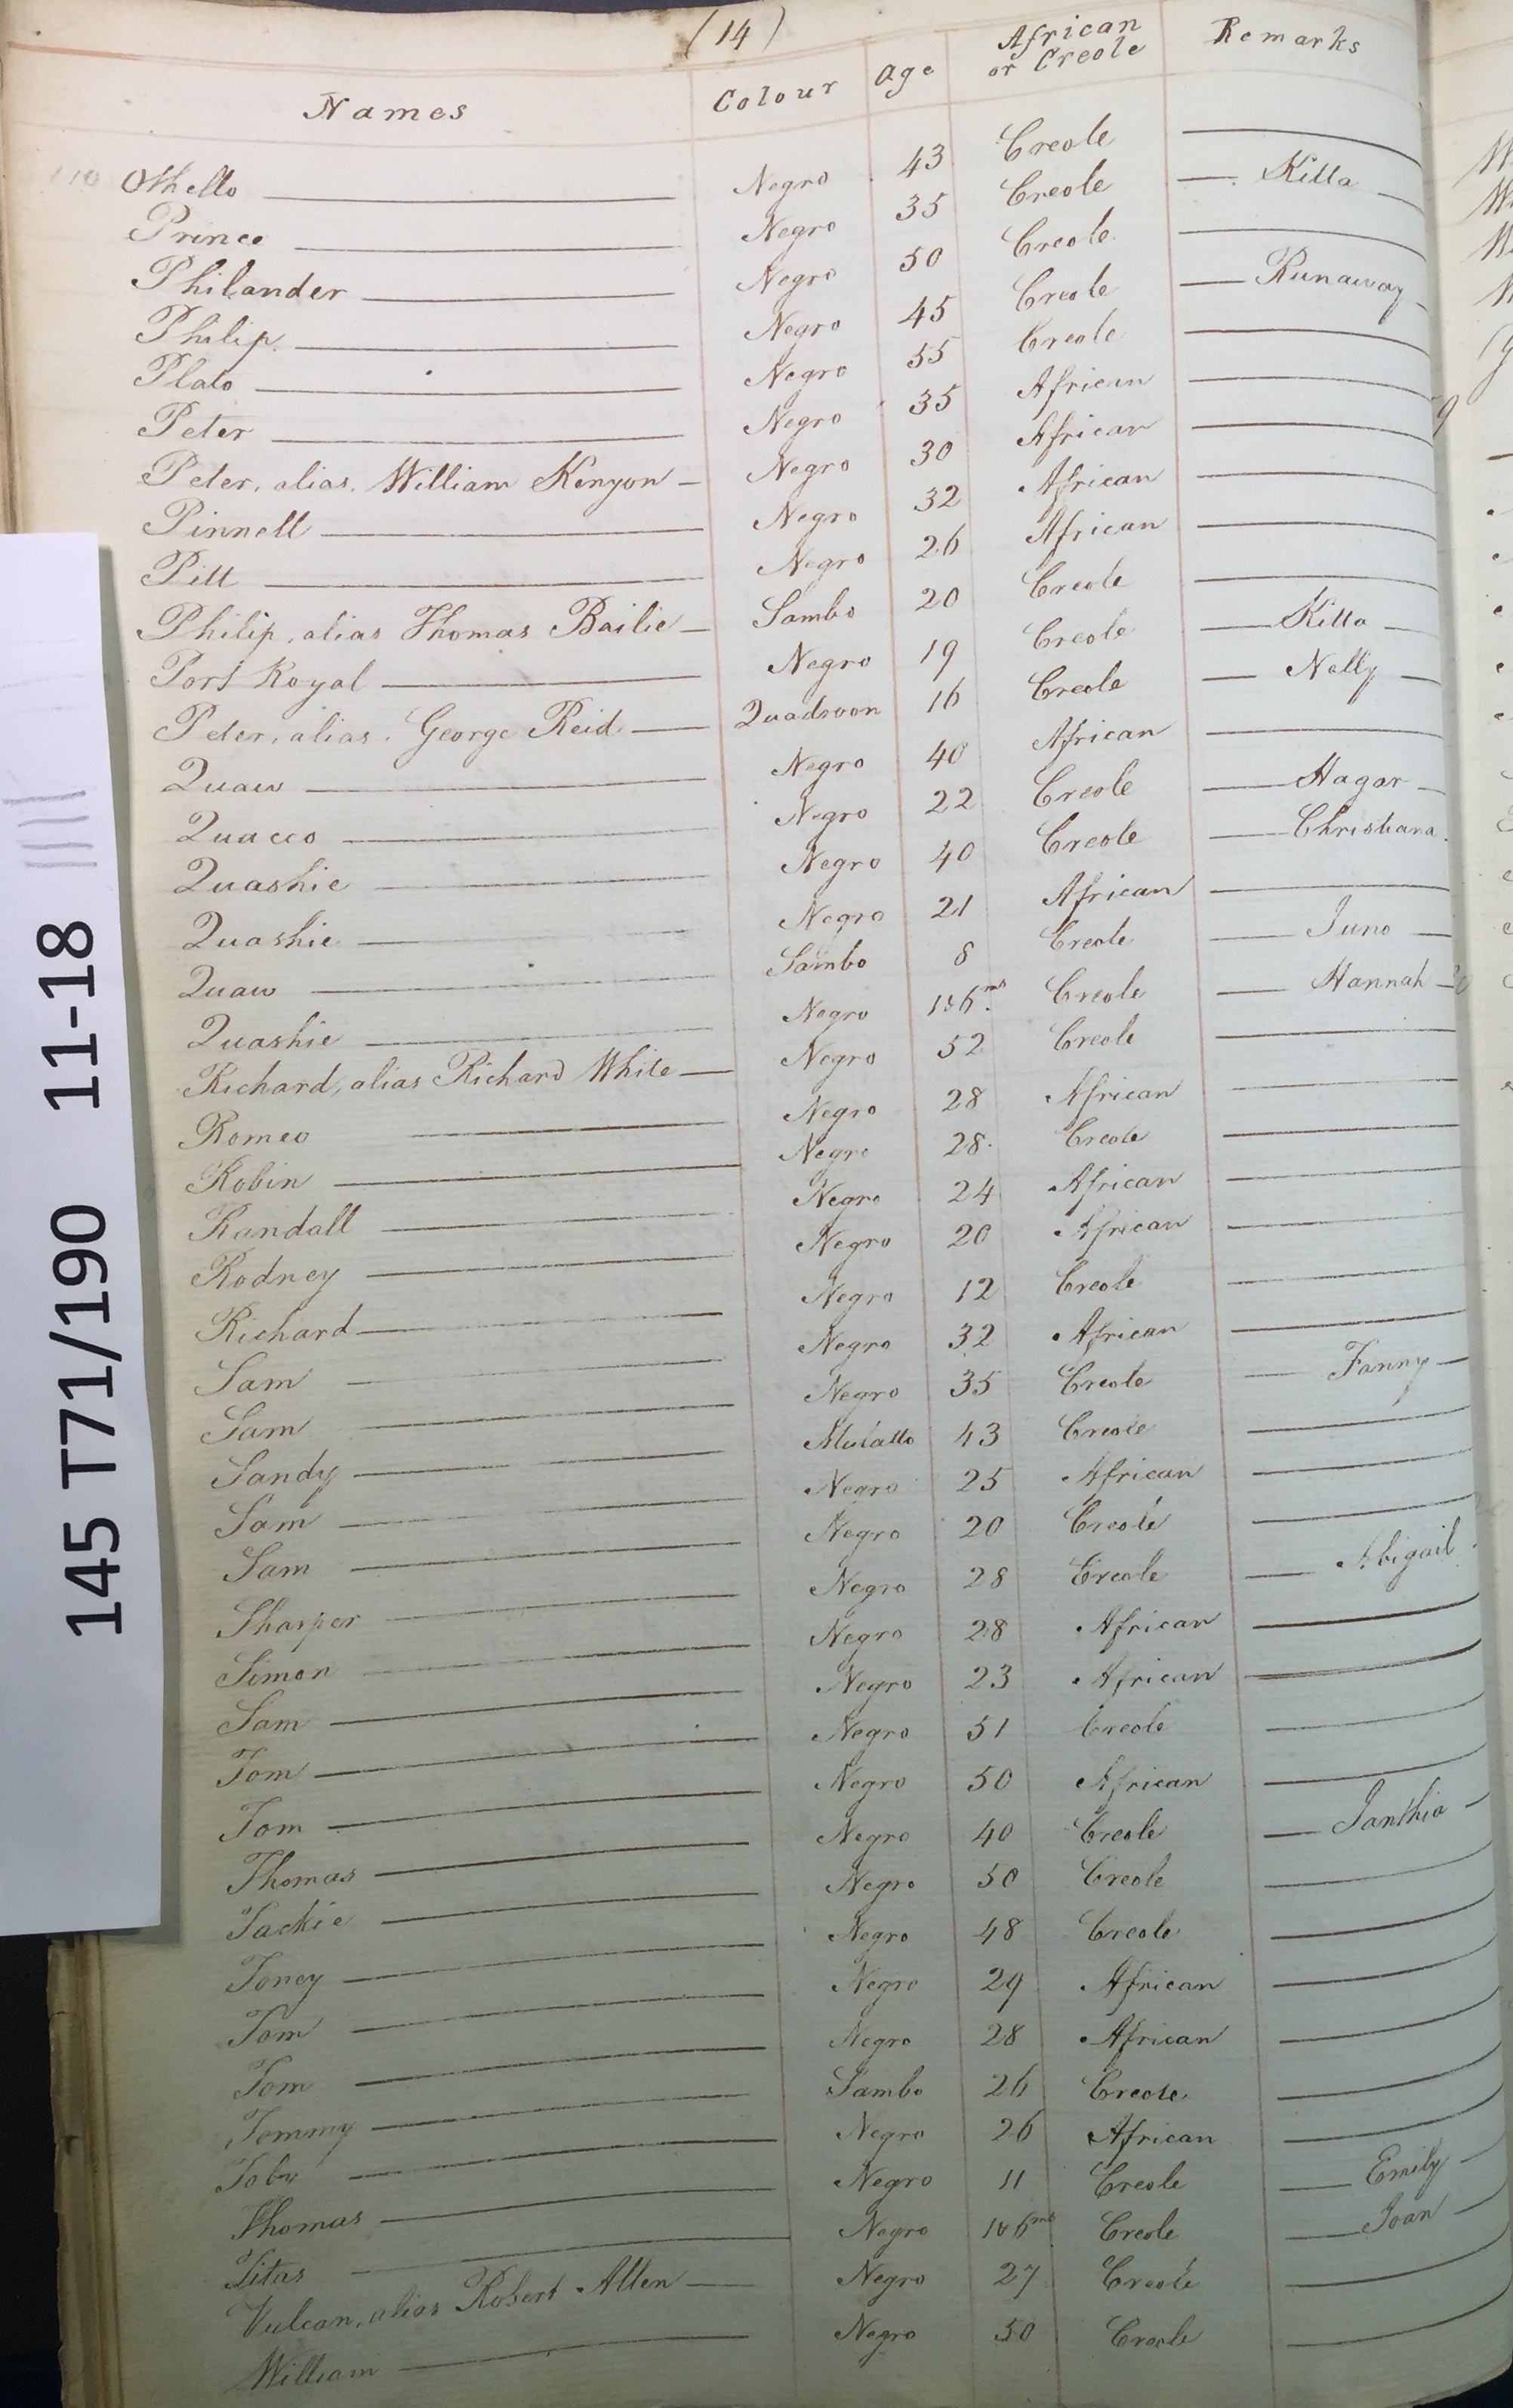 (14)
Names Colour Age African or Creole Remarks
110 Othello Negro 43 Creole
Prince Negro 35 Creole Kitta
Philander Negro 50 Creole
Philip Negro 45 Creole Runaway
Plato Negro 55 Creole
Peter Negro 35 African
Peter, alias. William Kenyon Negro 30 African
Pinnell Negro 32 African
Pitt Negro 26 African
Philip, alias Thomas Bailie Sambo 20 Creole
Port Royal Negro 19 Creole Kitta
Peter, alias. George Reid Quadroon 16 Creole Nelly
Quaw Negro 40 African
Quacco Negro 22 Creole Hagar
Quashie Negro 40 Creole Christiana
Quashie Negro 21 African
Quaw Sambo 8 Creole Juno
Quashie Negro 1&6ms. Creole Hannah
Richard, alias Richard White Negro 52 Creole
Romeo Negro 28 African
Robin Negro 28. Creole
Randall Negro 24 African
Rodney Negro 20 African
Richard Negro 12 Creole
Sam Negro 32 African
Sam Negro 35 Creole Fanny
Sandy Mulatto 43 Creole
Sam Negro 25 African
Sam Negro 20 Creole
Sharper Negro 28 Creole Abigail
Simon Negro 28 African
Sam Negro 23 African
Tom Negro 51 Creole
Tom Negro 50 African
Thomas Negro 40 Creole Janthia
Tackie Negro 50 Creole
Toney Negro 48 Creole
Tom Negro 29 African
Tom Negro 28 African
Tommy Sambo 26 Creole
Toby Negro 26 African
Thomas Negro 11 Creole Emily
Titas Negro 1&6ms Creole Joan
Vulcan, alias Robert Allen Negro 27 Creole
William Negro 50 Creole
145 T71/190 11-18